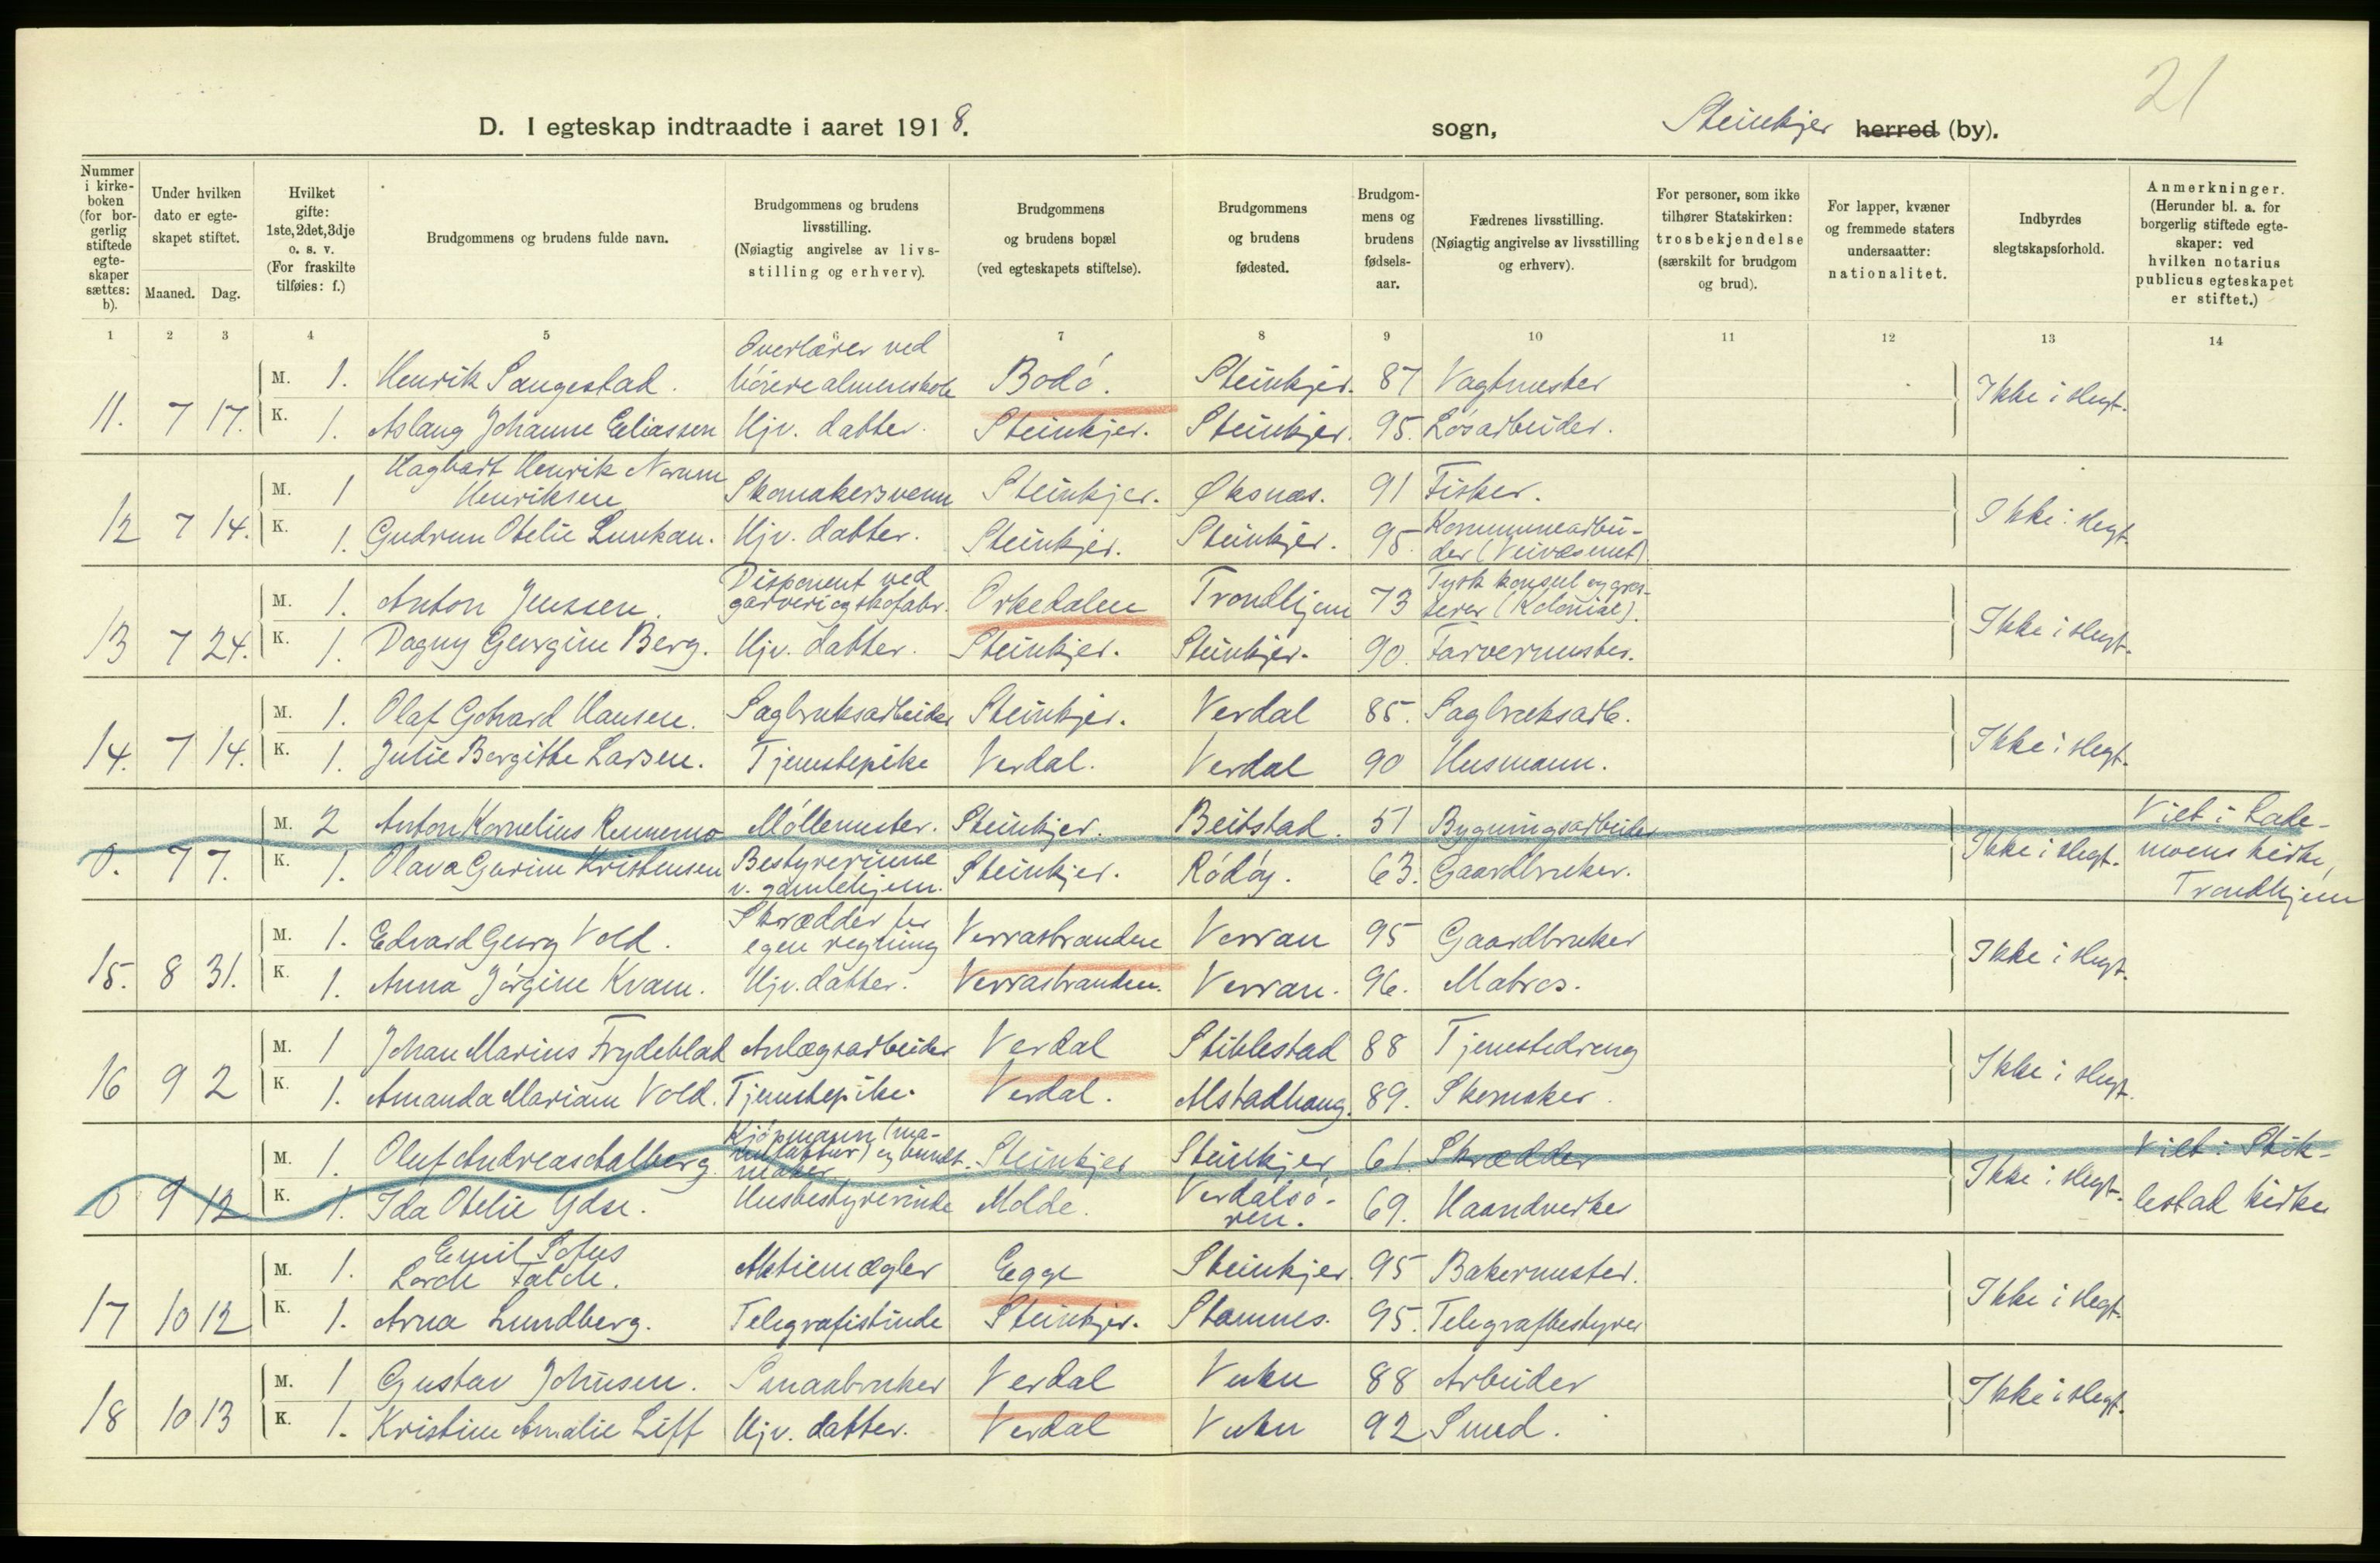 21
D. I egteskap indtraadte i aaret 1918. sogn, Steinkjer herred (by).
Nummer i kirkeboken (for borgerlig stiftede egteskaper sættes: b).
Under hvilken dato er egteskapet stiftet.
Maaned. Dag.
Hvilket gifte: 1ste, 2det, 3dje o. s. v. (For fraskilte tilføies: f.)
Brudgommens og brudens fulde navn.
Brudgommens og brudens livsstilling. (Nøiagtig angivelse av livsstilling og erhverv).
Brudgommens og brudens bopæl (ved egteskapets stiftelse).
Brudgommens og brudens fødested.
Brudgommens og brudens fødselsaar.
Fædrenes livsstilling. (Nøiagtig angivelse av livsstilling og erhverv).
For personer, som ikke tilhører Statskirken: trosbekjendelse (særskilt for brudgom og brud).
For lapper, kvæner og fremmede staters undersaatter: nationalitet.
Indbyrdes slegtskapsforhold.
Anmerkninger. (Herunder bl. a. for borgerlig stiftede egteskaper: ved hvilken notarius publicus egteskapet er stiftet.)
1 2 3 4 5 6 7 8 9 10 11 12 13 14
M. 1. Henrik Sangestad. Overlærer ved höiere almenskole Bodö. Steinkjer. 87 Vagtmester
11. 7 17. K. 1. Aslaug Johanne Eliassen Hjv. datter. Steinkjer. Steinkjer. 95. Løsarbeider. Ikke i slegt.
M. 1 Hagbart Henrik Norum Henriksen Skomakersvenn Steinkjer. Øksnæs. 91 Fisker.
12 7 14. K. 1. Gudrun Otelie Lunkan. Hjv. datter. Steinkjer. Steinkjer. 95. Kommunearbeider (Veivæsenet). Ikke i slegt.
M. 1. Anton Jenssen. Disponent ved garveri og skofabr. Orkedalen Trondhjem 73 Tysk konsul og grosserer (Kolonial).
13 7 24. K. 1. Dagny Georgine Berg. Hjv. datter. Steinkjer. Steinkjer. 90. Farvermester. Ikke i slegt.
M. 1. Olaf Gotvard Hansen. Sagbruksarbeider Steinkjer. Verdal 85. Sagbruksarb.
14. 7 14. K. 1. Julie Bergitte Larsen. Tjenestepike Verdal. Verdal 90 Husmann. Ikke i slegt.
M. 2 Anton Kornelius Rennemo Möllemester. Steinkjer. Beitstad. 51 Bygningsarbeider
0. 7 7. K. 1. Olava Gurine Kristensen Bestyrerinne v. gamlehjem. Steinkjer. Rödöy. 63. Gaardbruker. Ikke i slegt. Viet i Lademoens kirke, Trondhjem
M. 1. Edvard Georg Vold. Skrædder for egen regning Verrastranden Verran 95 Gaardbruker
15. 8 31. K. 1. Anna Jörgine Kvam. Hjv. datter. Verrastranden. Verran. 96. Matros. Ikke i slegt.
M. 1 Johan Marius Frydeblad Anlægsarbeider Verdal Stiklestad 88 Tjenestedreng
16 9 2 K. 1. Amanda Mariane Vold. Tjenestepike. Verdal. Alstadhaug. 89. Skomaker. Ikke i slegt.
M. 1. Oluf Andreas Aalberg. Kjöpmann (manufaktur) og buntmaker Steinkjer Steinkjer 61. Skrædder
0 9 12 K. 1. Ida Otelie Ydse. Husbestyrerinde Molde. Verdalsören. 69. Haandverker Ikke i slegt. Viet i Stiklestad kirke
M. 1. Emil Sofus Lorck Falch. Aktiemægler Egge Steinkjer. 95 Bakermester.
17 10 12 K. 1. Arna Lundberg. Telegrafistinde Steinkjer. Stamnes. 95. Telegrafbestyrer Ikke i slegt.
M. 1 Gustav Johnsen. Smaabruker Verdal Vuku 88 Arbeider
18 10 13 K. 1. Kristine Amalie Leff Hjv. datter. Verdal Vuku 92 Smed. Ikke i slegt.